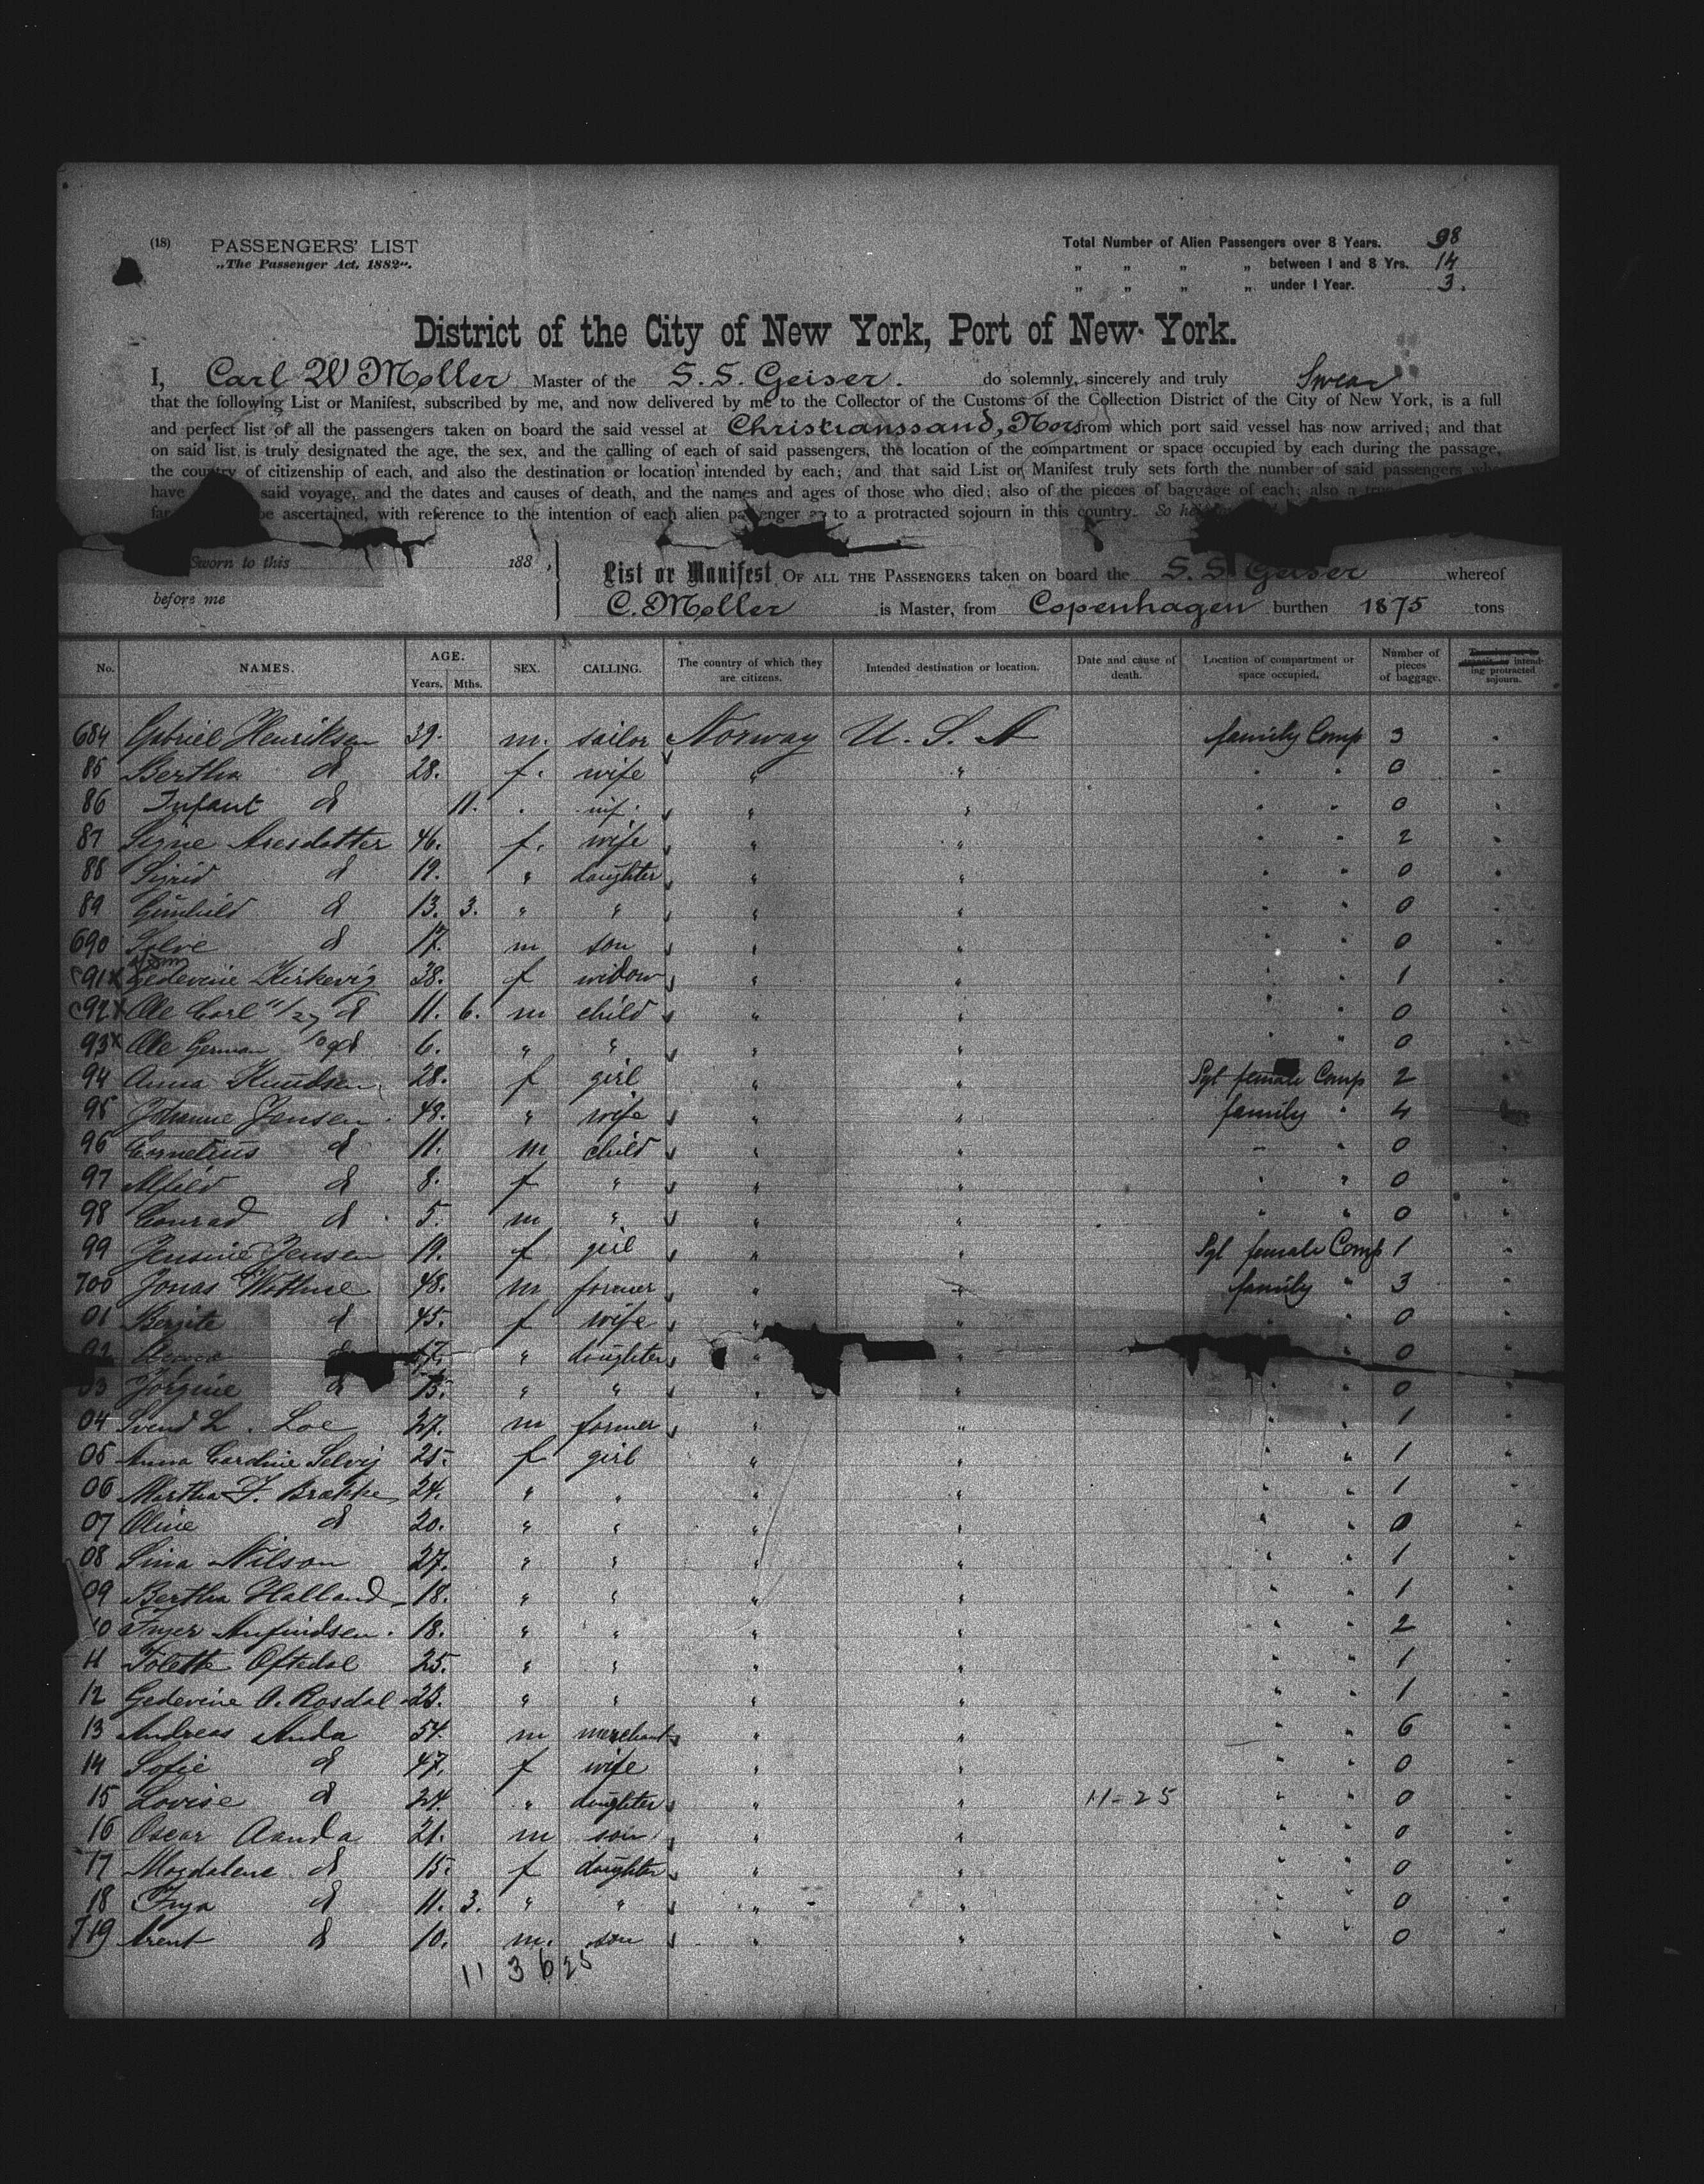 (18) PASSENGERS' LIST
„The Passenger Act, 1882".
Total Number of Alien Passengers over 8 Years. 98
„ „ „ „ between 1 and 8 Yrs. 14
„ „ „ „ under 1 Year. 3.
District of the City of New York, Port of New York.
I, Carl W Moller Master of the S. S. Geiser. do solemnly, sincerely and truly Swear
that the following List or Manifest, subscribed by me, and now delivered by me to the Collector of the Customs of the Collection District of the City of New York, is a full
and perfect list of all the passengers taken on board the said vessel at Christianssand, Nor from which port said vessel has now arrived; and that
on said list is truly designated the age, the sex, and the calling of each of said passengers, the location of the compartment or space occupied by each during the passage,
the country of citizenship of each, and also the destination or location intended by each; and that said List or Manifest truly sets forth the number of said passengers who
have said voyage, and the dates and causes of death, and the names and ages of those who died; also of the pieces of baggage of each; also a true
far be ascertained, with reference to the intention of each alien passenger as to a protracted sojourn in this country. So help
Sworn to this 188 ,
before me
List or Manifest OF ALL THE PASSENGERS taken on board the S. S. Geiser whereof
C. Moller is Master, from Copenhagen burthen 1875 tons
No. NAMES. AGE. Years. Mths. SEX. CALLING. The country of which they are citizens. Intended destination or location. Date and cause of death. Location of compartment or space occupied. Number of pieces of baggage. intending protracted sojourn.
684 Gabriel Henriksen 39. m. sailor Norway U. S. A family Comp 3
85 Bertha d 28. f. wife " " " " 0
86 Infant d 11. inf. " " " " 0
87 Signe Aresdatter 46. f. wife " " " " 2
88 Sigrid d 19. " daughter " " " " 0
89 Gunhild d 13. 3. " " " " " " 0
690 d 17. m son " " " " 0
91 x Gedevine Kirkevig 38. f widow " " " " 1
92 x Ole Carl d 11. 6. m child " " " " 0
93 x Ole German d 6. " " " " " " 0
94 Anna Knudsen 28. f girl " " Sgl female Comp 2
95 Johanne Jensen 48. " wife " " family " 4
96 Cornelius d 11. m child " " " " 0
97 d 8. f " " " " " 0
98 Conrad d 5. m " " " " " 0
99 Jensine Jensen 19. f girl " " Sgl female Comp 1
700 Jonas 48. m farmer " " family " 3
01 Bergite d 45. f wife " " " " 0
02 d 17. " daughter " " " 0
03 Jorgine d 15. " " " " " " 0
04 Svend L. Loe 27. m farmer " " " " 1
05 Anna Caroline Selvig 25. f girl " " " " 1
06 Martha F. Brakke 24. " " " " " " 1
07 Oline d 20. " " " " " " 0
08 Sina Nilson 27. " " " " " " 1
09 Bertha Halland 18. " " " " " " 1
10 Inger Anfindsen 18. " " " " " " 2
11 Tolette Oftedal 25. " " " " " " 1
12 Gedevine A. Rosdal 28. " " " " " " 1
13 Andreas Anda 54. m merchant " " " " 6
14 Sofie d 47. f wife " " " " 0
15 Lovise d 24. " daughter " " 11-25 " " 0
16 Oscar Aanda 21. m son " " " " 0
17 Magdalene d 15. f daughter " " " " 0
18 Inga d 11. 3. " " " " " " 0
719 Arent d 10. m. son " " " " 0
11 3 6 25